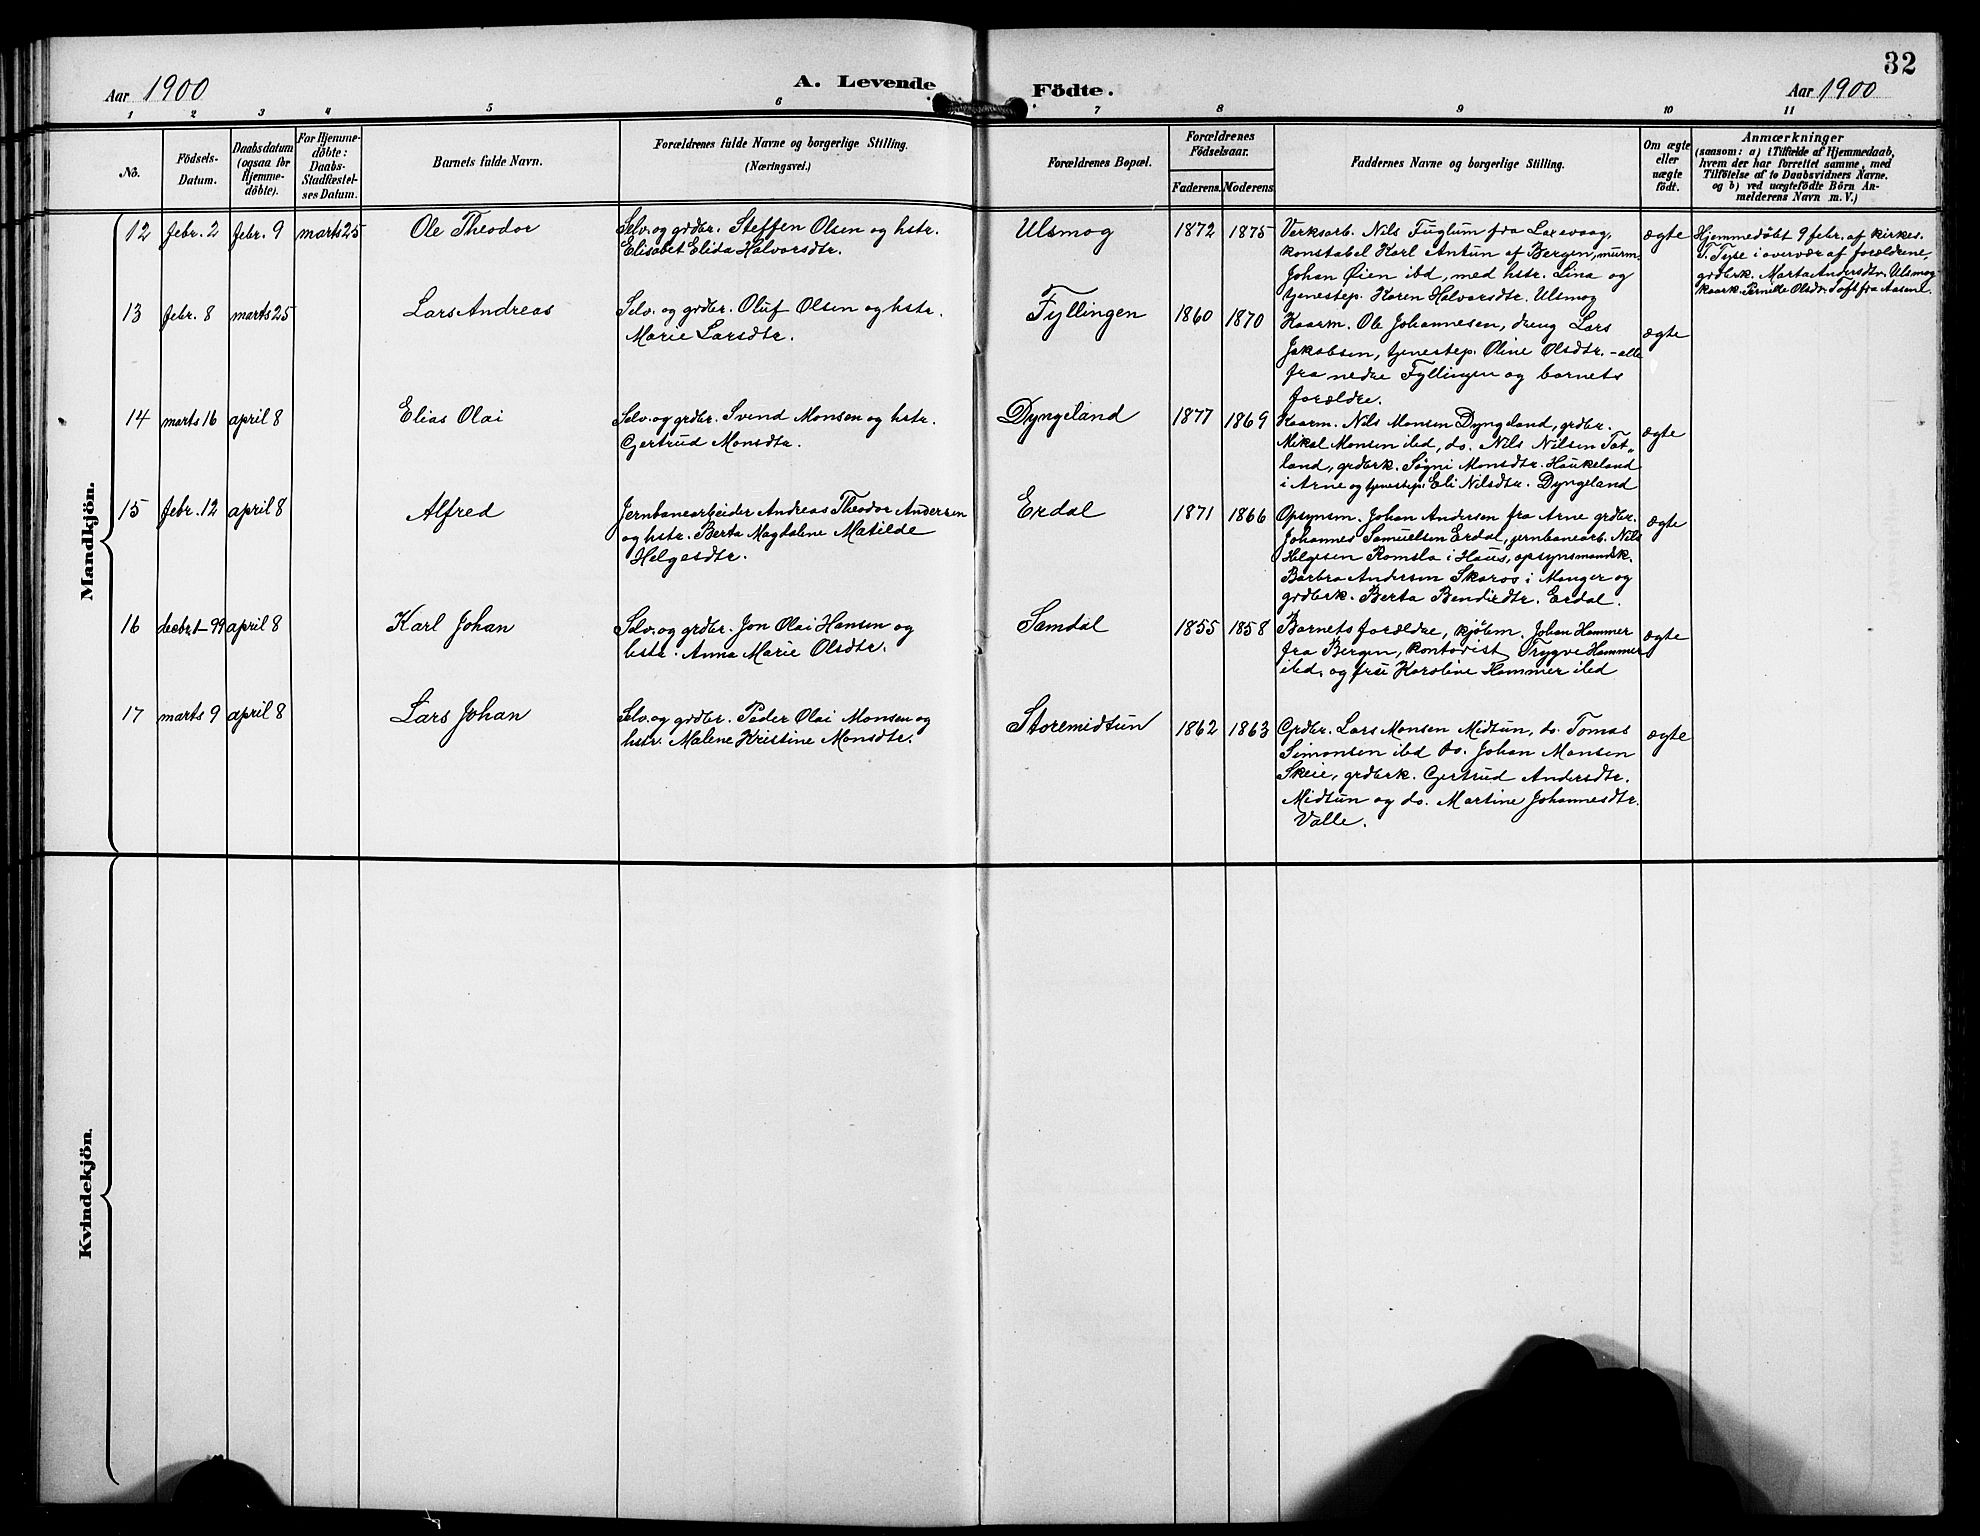 32
Aar 1900
A. Levende
Födte.
Aar 1900
1 2 3 4 5 6 7 8 9 10 11
No.
Födsels-
Datum.
Daabsdatum
(ogsaa for
Hjemme-
döbte).
For Hjemme-
döbte:
Daabs-
Stadfæstel-
ses Datum.
Barnets fulde Navn.
Forældrenes fulde Navne og borgerlige Stilling.
(Næringsvei.)
Forældrenes Bopæl.
Forældrenes
Födselsaar.
Faderens. Moderens.
Faddernes Navne og borgerlige Stilling.
Om ægte
eller
uægte
födt.
Anmærkninger
(saasom: a) i Tilfælde af Hjemmedaab,
hvem der har forrettet samme, med
Tilföielse af to Daabsvidners Navne.
og b) ved uægtefödte Börn An-
melderens Navn m. V.)
Mandkjön.
12 febr. 2 febr. 9 marts 25 Ole Theodor
Selv. og grdbr. Steffen Olsen og hstr.
Elisabet Elida Halvorsdtr.
Ulsmog 1872 1875
Verksarb. Nils Fuglum fra Laxevaag,
konstabel Karl Antun af Bergen, murm.
Johan Øien ibd, med hstr. Lina og
tjenestep. Karen Halvorsdtr. Ulsmog
ægte
Hjemmedøbt 9 febr. af kirkes.
T. Tyse i overvær af forældrene,
grdbrk. Marta Andersdtr. Ulsmog
kaark. Pernille Olsdtr. Toft fra Aasene.
13 febr. 8 marts 25 Lars Andreas
Selv. og grdbr. Oluf Olsen og hstr.
Marie Larsdtr.
Fyllingen 1860 1870
Kaarm. Ole Johannesen, dreng Lars
Jakobsen, tjenestep. Oline Olsdtr. – alle
fra nedre Fyllingen og barnets
forældre.
ægte
14 marts 16 april 8 Elias Olai
Selv. og grdbr. Svend Monsen og hstr.
Gertrud Monsdtr.
Dyngeland 1877 1869
Kaarm. Nils Monsen Dyngeland, grdbr.
Mikal Monsen ibd, do. Nils Nilsen Tot-
land, grdbrk. Søgni Monsdtr. Haukeland
i Arne og tjenestep. Eli Nilsdtr. Dyngeland
ægte
15 febr. 12 april 8 Alfred
Jernbanearbeider Andreas Theodor Andersen
og hstr. Berta Magdalene Matilde
Helgesdtr.
Erdal 1871 1866
Opsynsm. Johan Andersen fra Arne grdbr.
Johannes Samuelsen Erdal, jernbanearb. Nils
Helgesen Romslo i Haus, opsynsmandsk.
Barbra Andersen Skaros i Manger og
grdbrk. Berta Bendixdtr. Erdal.
ægte
16 decbr. 1–99 april 8 Karl Johan
Selv. og grdbr. Jon Olai Hansen og
hstr. Anna Marie Olsdtr.
Samdal 1855 1858
Barnets forældre, kjøbm. Johan Hammer
fra Bergen, kontorist Trygve Hammer
ibd. og fru Karoline Hammer ibd
ægte
17 marts 9 april 8 Lars Johan
Selv. og grdbr. Peder Olai Monsen og
hstr. Malene Kristine Monsdtr.
Storemidtun 1862 1863
Grdbr. Lars Monsen Midtun, do. Tomas
Simonsen ibd do. Johan Monsen
Skeie, grdbrk. Gertrud Andersdtr.
Midtun og do. Martine Johannesdtr.
Valle.
ægte
Kvindekjön.